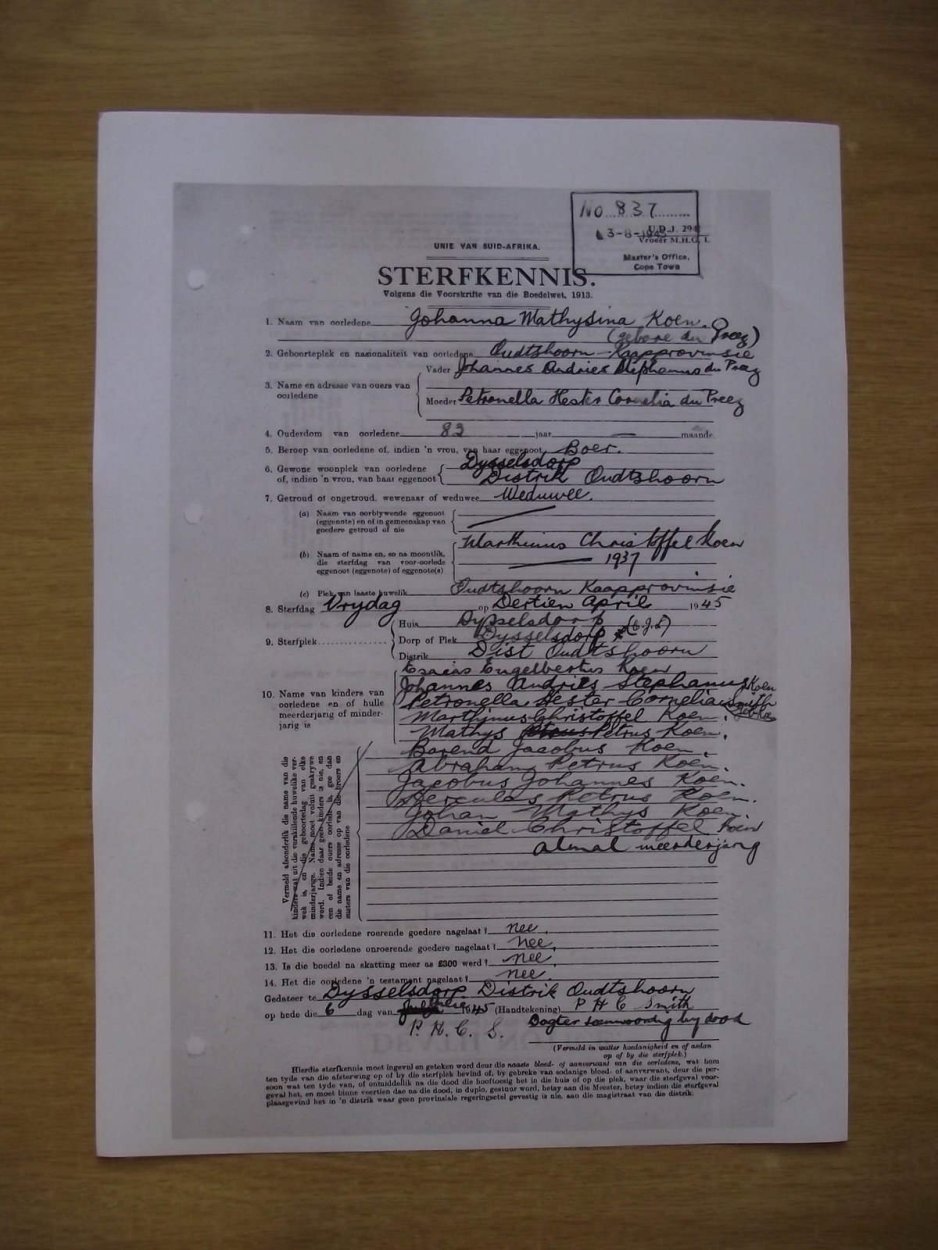 No 837
U.D.J. 294
3-8-1945
Vroeër M.H.G. 1.
Master's Office,
Cape Town
UNIE VAN SUID-AFRIKA.
STERFKENNIS.
Volgens die Voorskrifte van die Boedelwet, 1913.
1. Naam van oorledene Johanna Mathysina Koen.
(gebore du Preez)
2. Geboorteplek en nasionaliteit van oorledene Oudtshoorn Kaapprovinsie
Vader Johannes Andries Stephanus du Preez
3. Name en adresse van ouers van
oorledene
Moeder Petronella Hester Cornelia du Preez
4. Ouderdom van oorledene 82 jaar — maande
5. Beroep van oorledene of, indien 'n vrou, van haar eggenoot Boer.
6. Gewone woonplek van oorledene Dysselsdorp
of, indien 'n vrou, van haar eggenoot Distrik Oudtshoorn
7. Getroud of ongetroud, wewenaar of weduwee Weduwee.
(a) Naam van oorblywende eggenoot
(eggenote) en of in gemeenskap van
goedere getroud of nie
Marthinus Christoffel Koen
(b) Naam of name en, so na moontlik,
die sterfdag van voor-oorlede
eggenoot (eggenote) of eggenote(s)
1937
(c) Plek van laaste huwelik Oudtshoorn Kaapprovinsie
8. Sterfdag Vrydag op Dertien April 1945
Huis Dysselsdorp
9. Sterfplek Dorp of Plek Dysselsdorp
Distrik Dist Oudtshoorn
Esaias Engelbertus Koen
Johannes Andries Stephanus Koen
10. Name van kinders van
oorledene en of hulle
meerderjarig of minder-
jarig is
Petronella Hester Cornelia Smith
Marthinus Christoffel Koen.
Mathys Petrus Koen.
Barend Jacobus Koen.
Abraham Petrus Koen.
Jacobus Johannes Koen.
Hercules Petrus Koen.
Johan Mathys Koen.
Daniel Christoffel Koen
almal meerderjarig
Vermeld afsonderlik die name van die
kinders wat uit die verskillende huwelike ver-
wek is, en die geboortedag van elke
minderjarige. Name moet voluit geskrywe
word. Indien daar geen kinders is nie, en
een of beide ouers oorlede is, gee dan
die name en adresse op van die broers en
susters van die oorledene
11. Het die oorledene roerende goedere nagelaat? nee.
12. Het die oorledene onroerende goedere nagelaat? nee.
13. Is die boedel na skatting meer as £300 werd? nee.
14. Het die oorledene 'n testament nagelaat? nee
Gedateer te Dysselsdorp Distrik Oudtshoorn
op hede die 6 dag van Julie 1945 (Handtekening) P H C Smith
P. H. C. S. Dogter teenwoordig by dood
(Vermeld in watter hoedanigheid en of aedan
op of by die sterfplek.)
Hierdie sterfkennis moet ingevul en geteken word deur die naaste bloed- of aanverwant van die oorledene, wat hom
ten tyde van die afsterwing op of by die sterfplek bevind of, by gebreke van sodanige bloed- of aanverwant, deur die per-
soon wat ten tyde van, of onmiddellik na die dood die hooftoesig het in die huis of op die plek, waar die sterfgeval voor-
geval het, en moet binne veertien dae na die dood, in duplo, gestuur word, betsy aan die Meester, betsy indien die sterfgeval
plaasgevind het in 'n distrik waar geen provinsiale regeringsetel gevestig is nie, aan die magistraat van die distrik.